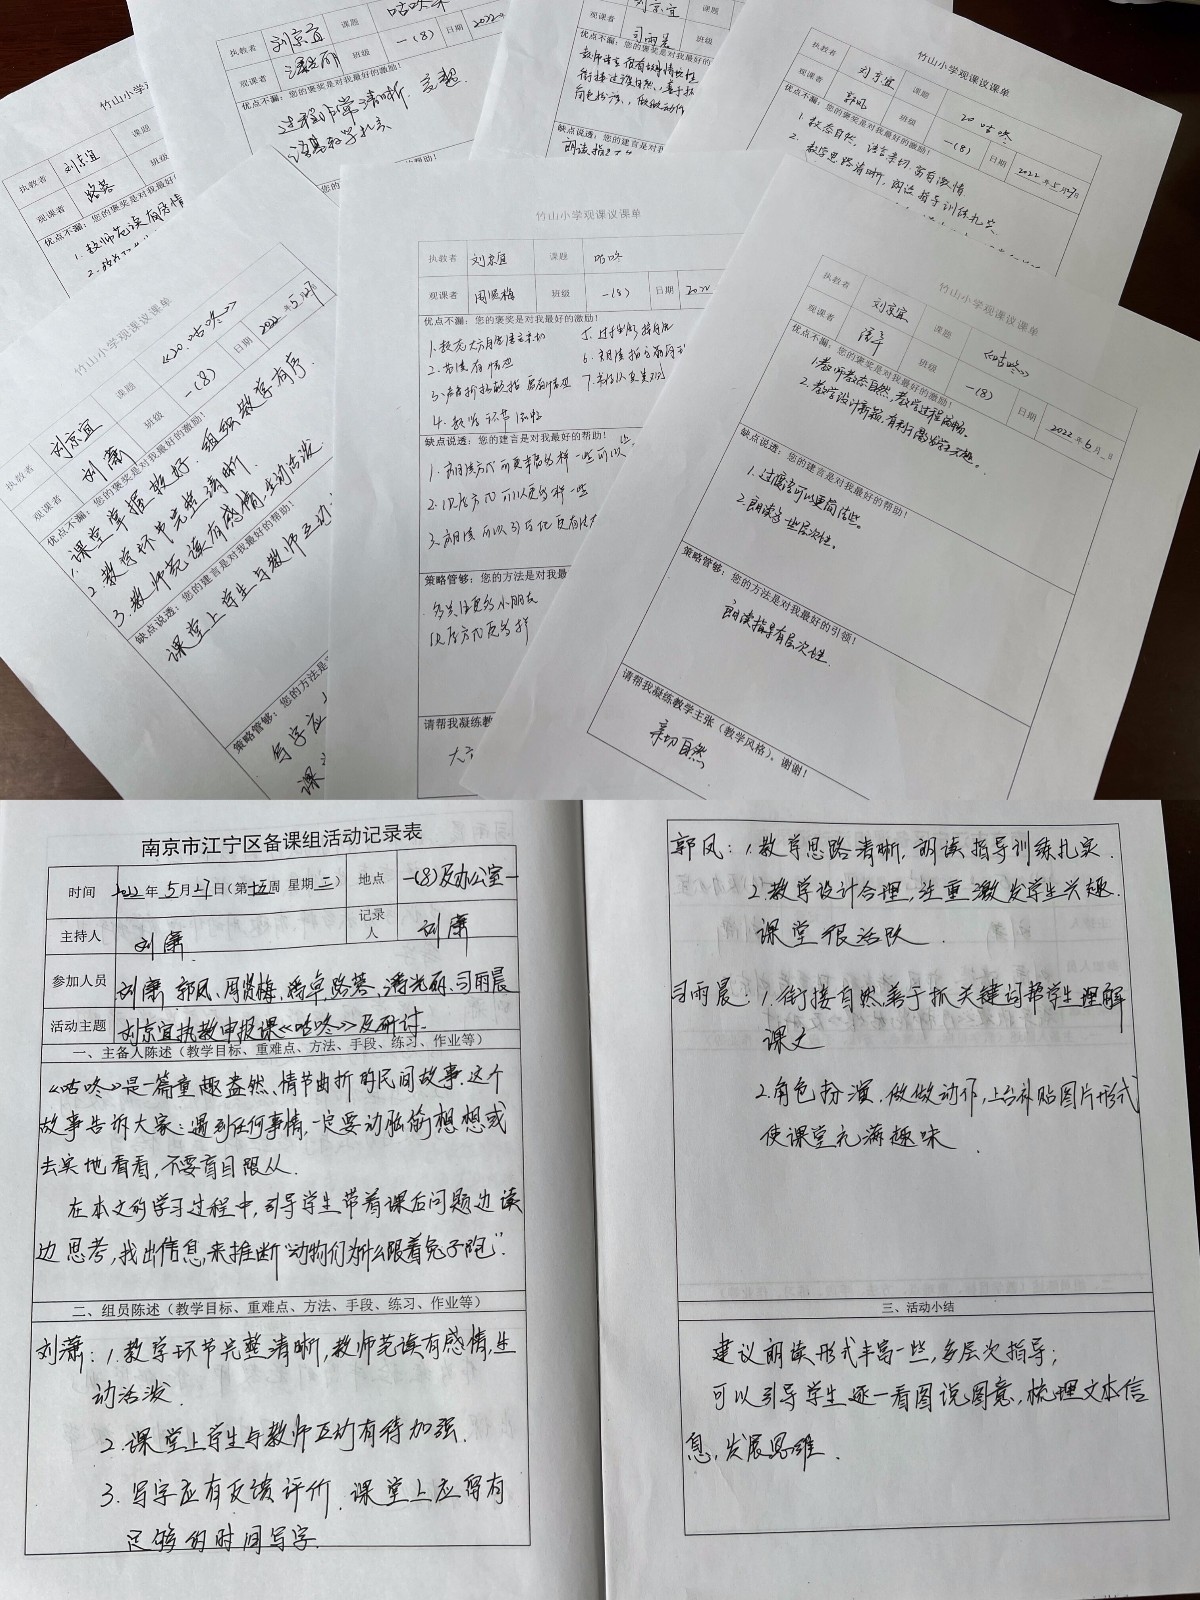 竹山小学
执教者 刘京宜 课题
观课者 路蓉 班级
优点不漏：您的褒奖是对我最好
1. 教师范读有感情
执教者 刘京宜 课题 咕咚来
观课者 班级 一(8) 日期 2022年
优点不漏：您的褒奖是对我最好的激励！
过程非常清晰
刘京宜 课题
司雨晨 班级
优点不漏：您的褒奖是对我最好的激励！
衔接过渡自然，善于抓
角色扮演，做做动作
缺点说透：您的建言是对我最好
竹山小学观课议课单
执教者 刘京宜 课题 20 咕咚
观课者 郭凤 班级 一(8) 日期 2022年5月27日
优点不漏：您的褒奖是对我最好的激励！
1. 教态自然，语言亲切，富有激情
2. 教学思路清晰，阅读指导训练扎实
竹山小学观课议课单
执教者 刘京宜 课题 《20.咕咚》
观课者 刘潇 班级 一(8) 日期 2022年5月27日
优点不漏：您的褒奖是对我最好的激励！
1. 课堂掌握较好，组织教学有序
2. 教学环节完整清晰.
3. 教师范读有感情，生动活泼
缺点说透：您的建言是对我最好的帮助！
课堂上学生与教师互动
策略管够：您的方法是对
写字应
课
竹山小学观课议课单
执教者 刘京宜 课题 咕咚
观课者 周贤梅 班级 一(8) 日期 2022
优点不漏：您的褒奖是对我最好的激励！
1. 教态大方自然语言亲切
4. 教学环节
缺点说透：您的建言是对我最好的帮助！
1. 朗读方式可更丰富多样一些可以
2. 识字方式可以更多样一些
3. 朗读可以引导他更有
策略管够：您的方法是对我最
多关注更多小朋友
识字方式更多样
请帮我凝练教
大
竹山小学观课议课单
执教者 刘京宜 课题 《咕咚》
观课者 班级 一(8) 日期 2022年6月 日
优点不漏：您的褒奖是对我最好的激励！
1. 教师教态自然，教学过程流畅。
2. 教学设计新颖，有利于激发学生兴趣。
缺点说透：您的建言是对我最好的帮助！
1. 过渡语可以更简洁些。
2. 朗读多一些层次性。
策略管够：您的方法是对我最好的引领！
朗读指导有层次性
请帮我凝练教学主张（教学风格）。谢谢！
亲切自然
南京市江宁区备课组活动记录表
时间 2022年5月27日(第十五周 星期三) 地点 一(8)及办公室一
主持人 刘潇 记录人 刘潇
参加人员 刘潇、郭凤、周贤梅、潘卓、路蓉、潘光丽、司雨晨
活动主题 刘京宜执教申报课《咕咚》及研讨.
一、主备人陈述（教学目标、重难点、方法、手段、练习、作业等）
《咕咚》是一篇童趣盎然、情节曲折的民间故事.这个
故事告诉大家：遇到任何事情，一定要动脑筋想想或
去实地看看，不要盲目跟从.
在本文的学习过程中，引导学生带着课后问题边读
边思考，找出信息，来推断“动物们为什么跟着兔子跑”.
二、组员陈述（教学目标、重难点、方法、手段、练习、作业等）
刘潇：1. 教学环节完整清晰，教师范读有感情，生
动活泼.
2. 课堂上学生与教师互动有待加强.
3. 写字应有反馈评价.课堂上应留有
足够的时间写字.
郭凤：1. 教学思路清晰，朗读指导训练扎实.
2. 教学设计合理，注重激发学生兴趣.
课堂很活跃.
司雨晨：1. 衔接自然，善于抓关键词帮学生理解
课文
2. 角色扮演、做做动作，上台补贴图片形式
使课堂充满趣味.
三、活动小结
建议朗读形式丰富一些，多层次指导；
可以引导学生逐一看图说图意，梳理文本信
息，发展思维.